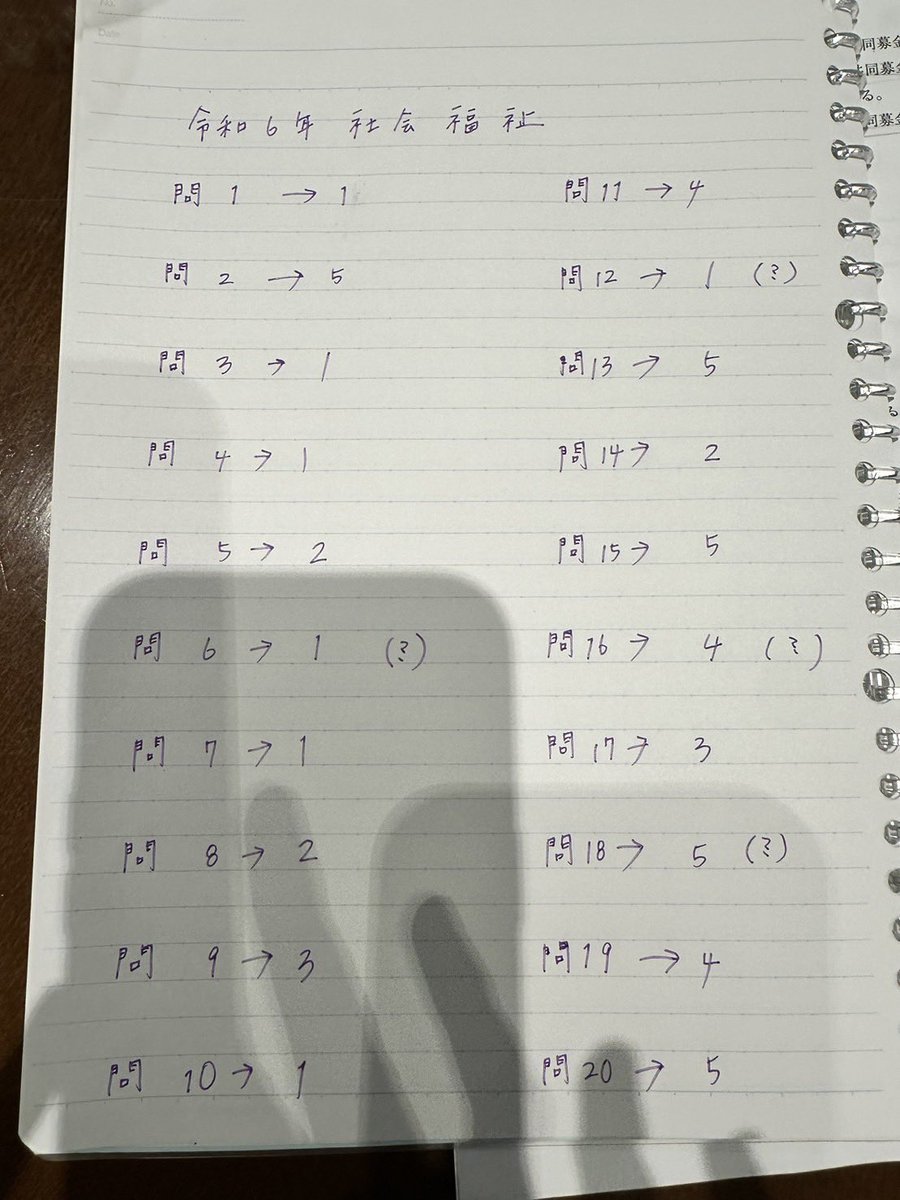 No.
Date
令和6年 社会福祉
問1 → 1
問2 → 5
問3 → 1
問4 → 1
問5 → 2
問6 → 1 (?)
問7 → 1
問8 → 2
問9 → 3
問10 → 1
問11 → 4
問12 → 1 (?)
問13 → 5
問14 → 2
問15 → 5
問16 → 4 (?)
問17 → 3
問18 → 5 (?)
問19 → 4
問20 → 5
同募金
同募金
る。
同募金
る